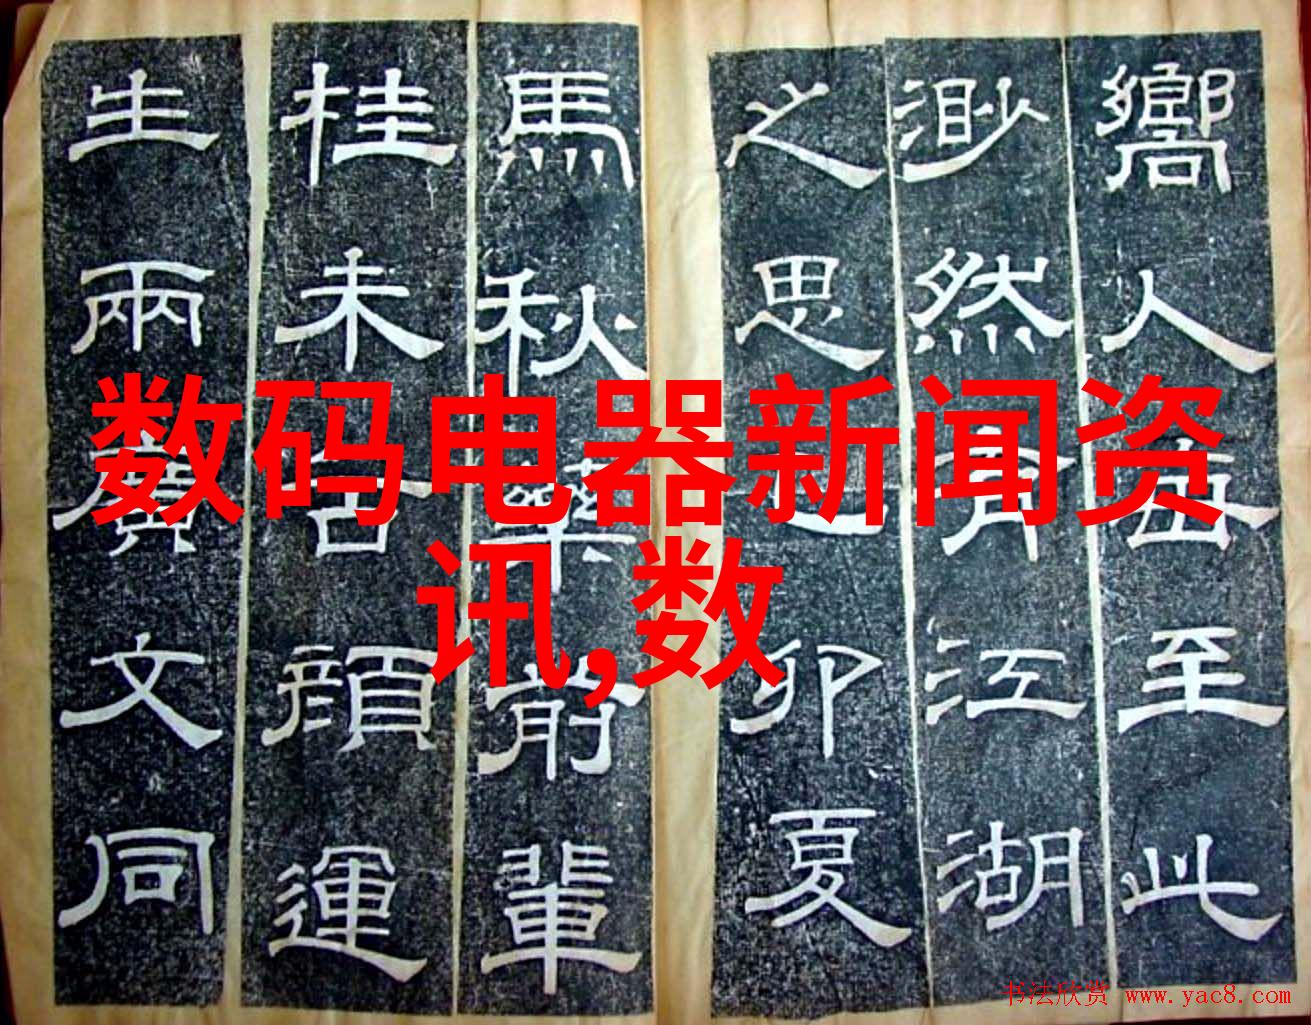 嚮人至此
渺然有江湖
之思卯夏
馬秋藥前輩
桂未谷顏運
生兩廣文同
数码电器新闻资
讯,数
书法欣赏 www.yac8.com